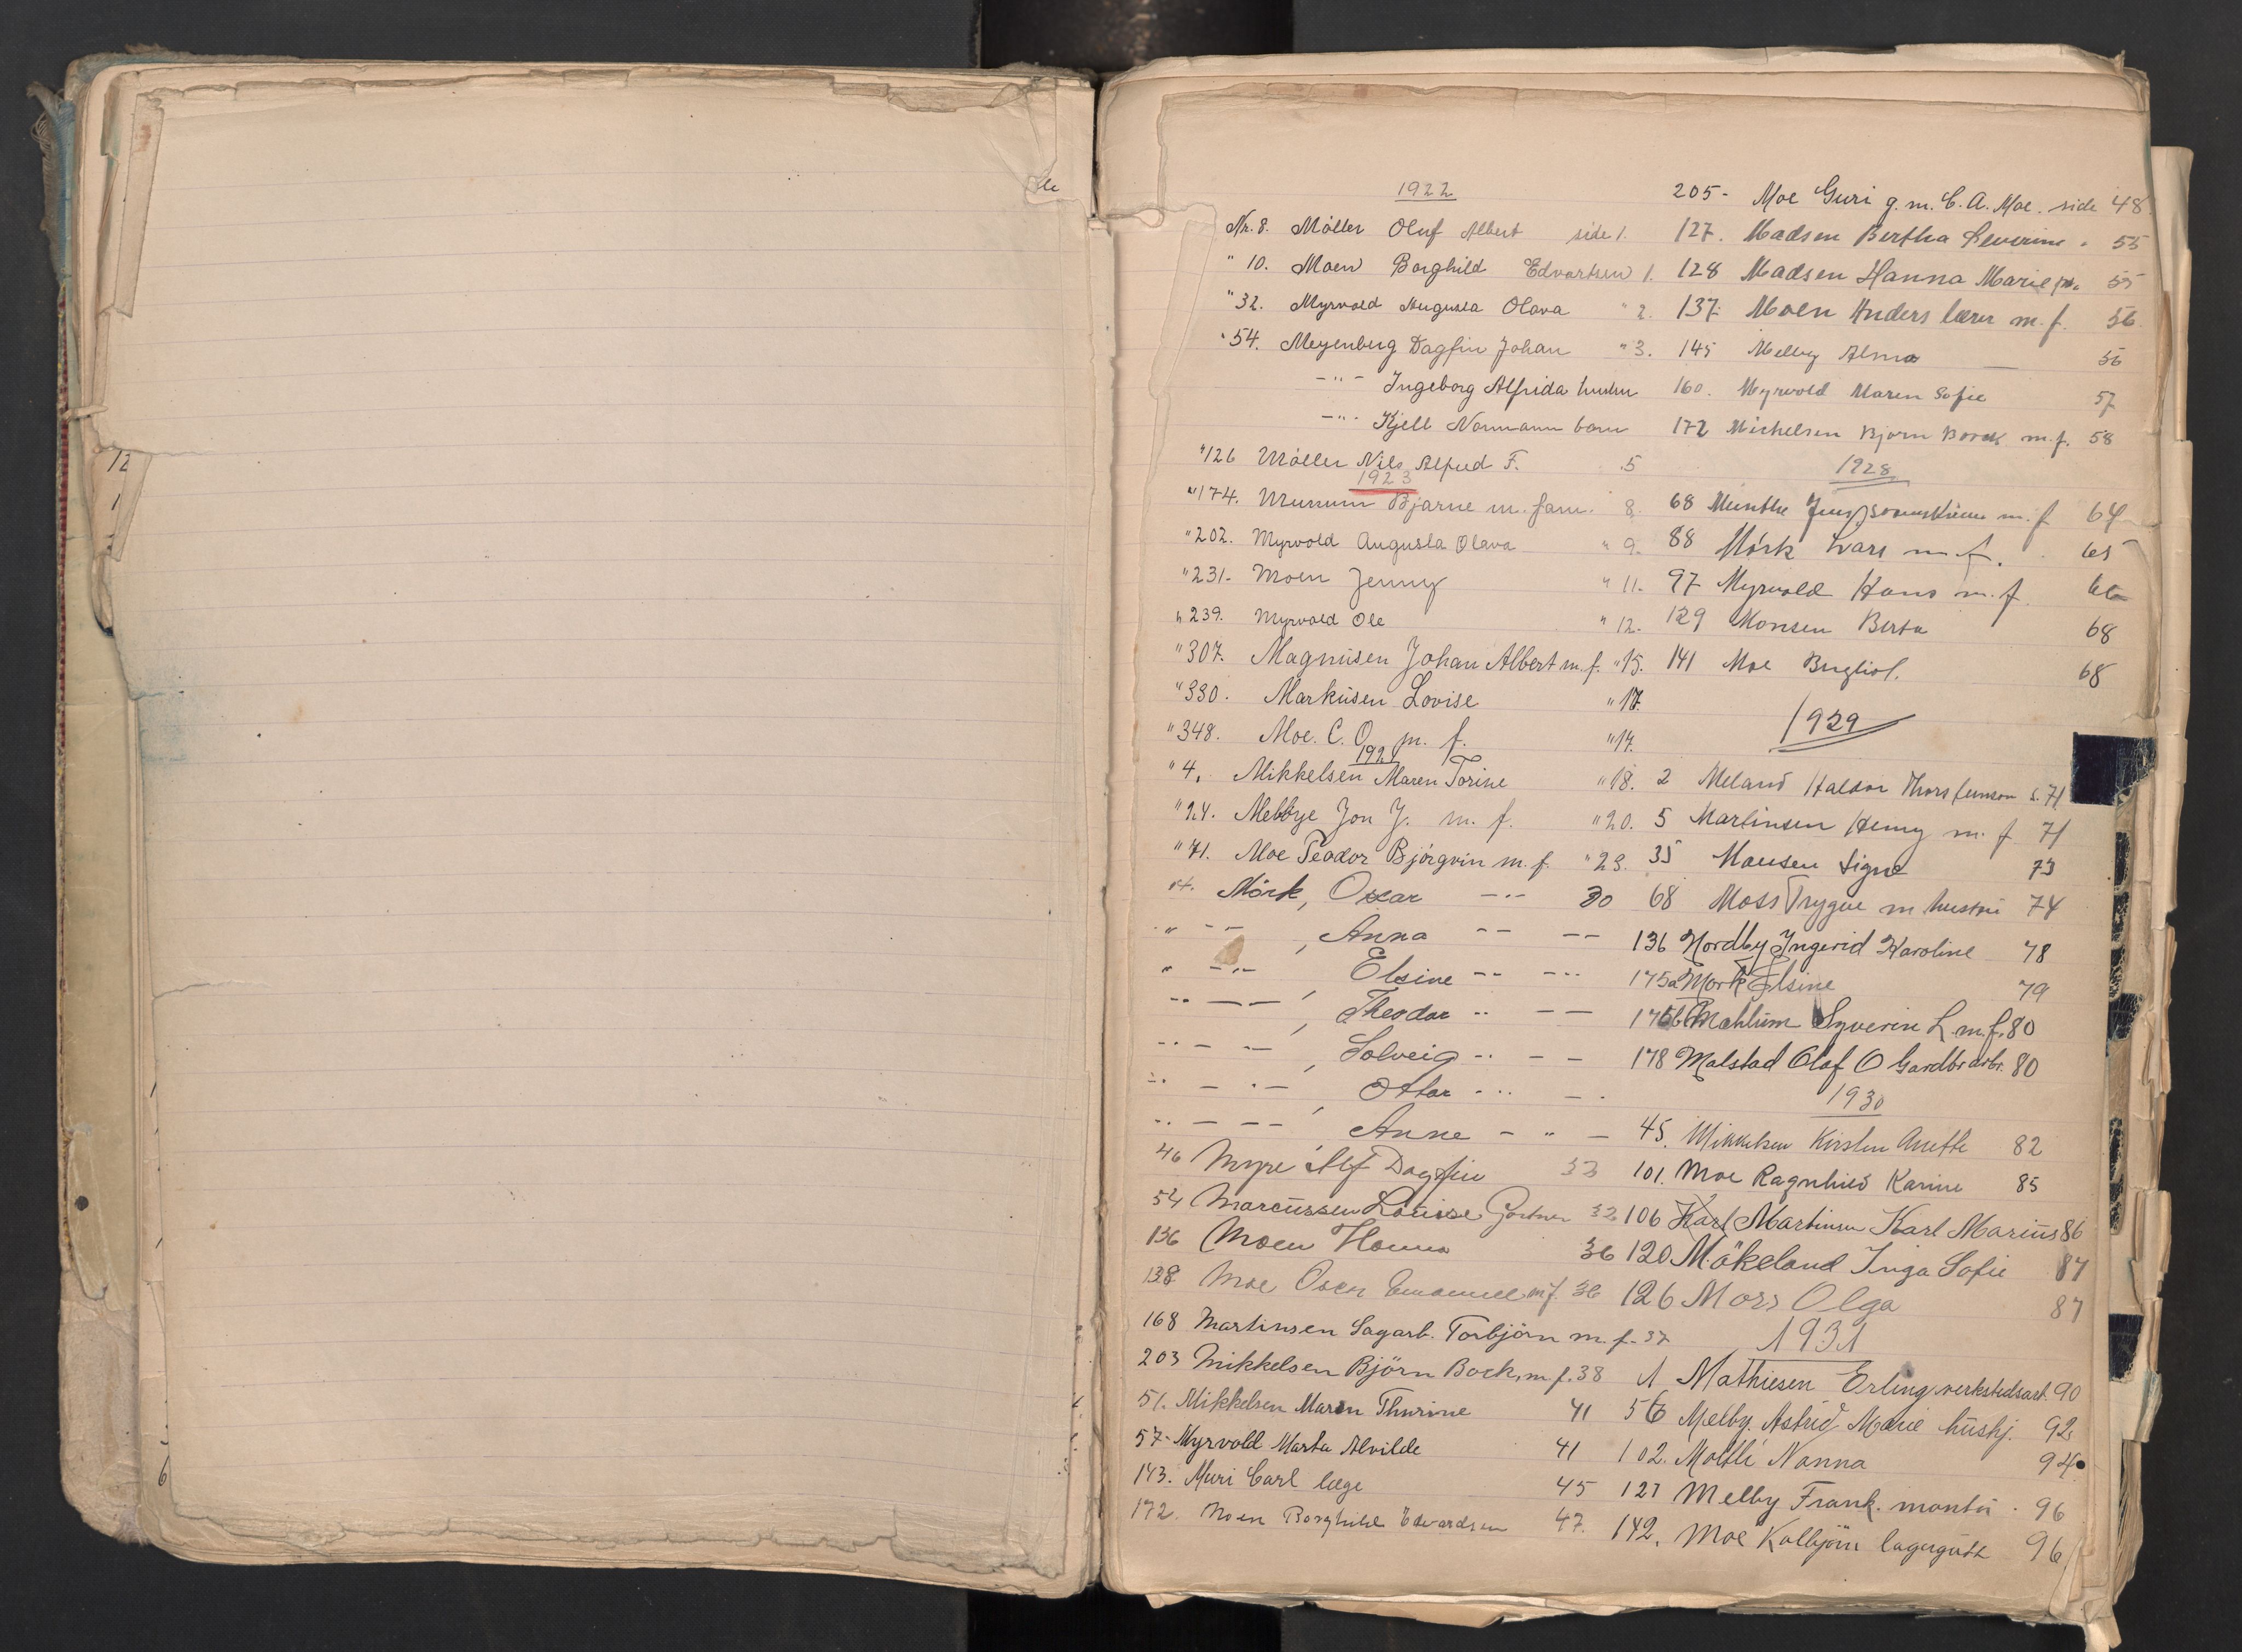 1922
Nr. 8. Möller Oluf Albert side 1.
" 10. Moen Borghild Edvartsen 1.
" 32. Myrvold Augusta Olava " 2.
" 54. Meyenberg Dagfin Johan " 3.
- " - Ingeborg Alfrida hustru
- " - Kjell Normann barn
" 126 Möller Nils Alfred F. .5
1923
" 174. Munum Bjarne m. fam. 8.
" 202. Myrvold Augusta Olava " 9.
" 231. Moen Jenny " 11.
" 239. Myrvold Ole " 12.
" 307. Magnüsen Johan Albert m. f. " 15.
" 330. Marküsen Lovise " 17.
" 348. Moe. C. O. m. f. " 17.
192
" 4. Mikkelsen Maren Torine " 18.
" 24. Mebbye Jon J. m. f. " 20.
" 71. Moe Teodor Björgvin m. f. " 23.
Mörk, Oscar - " - 30
" - " - , Anna - - - -
" - " - , Elsine - - - " -
" - - , Theodor " - -
" - - , Solveig " - -
" - " - , Ottar - " - .
" - - - , Anne - " -
46 Myre Alf Dagfin 32
54 Marcüssen Louise Gartner 32
136 Moen Hanna 36
138 Moe Oscar Emanuel m f. 36
168 Martinsen Sagarb. Torbjörn m. f. 37
203 Mikkelsen Björn Bock, m f. 38
51. Mikkelsen Maren Thurine 41
57. Myrvold Marta Alvilde 41
143. Muri Carl læge 45
172. Moen Borghild Edvardsen 47.
205 - Moe Guri g. m. C. A. Moe. side 48
127. Madsen Bertha Severine " 55
128 Madsen Hanna Marie 55
137. Moen Anders lærer m. f. 56.
145 Melby Alma — 56
160. Myrvold Maren Sofie 57
172 Michelsen Bjørn Bock m. f. 58
1928
68 Munthe m. f 64
88 Mörk Lars m f. 65
97 Myrvold Hans m. f. 66
129 Monsen Berta 68
141 Moe Bergliot. 68
1929
2 Meland Haldor Thorsteinson s. 71
5 Martinsen Henny m. f 71
35 Monsen Signe 73
68 Moss Trygve m hustru 74
136 Nordby Ingerid Karoline 78
175a Mork Elsine 79
175b Mahlum Syverin L. m. f. 80
178 Malstad Olaf O Gardbrarbr. 80
1930
45. Mikkelsen Kirsten Anette 82
101. Moe Ragnhild Karine 85
106 Karl Martinsen Karl Marius 86
120 Mäkeland Inga Sofie 87
126 Mors Olga 87
1931
1 Mathiesen Erling verkstedsarb. 90
56 Melby. Astrid Marie hüshj. 92
102. Moltli Nanna 94
127 Melby Frank. montör . 96
142. Moe Kolbjörn lagergutt 96